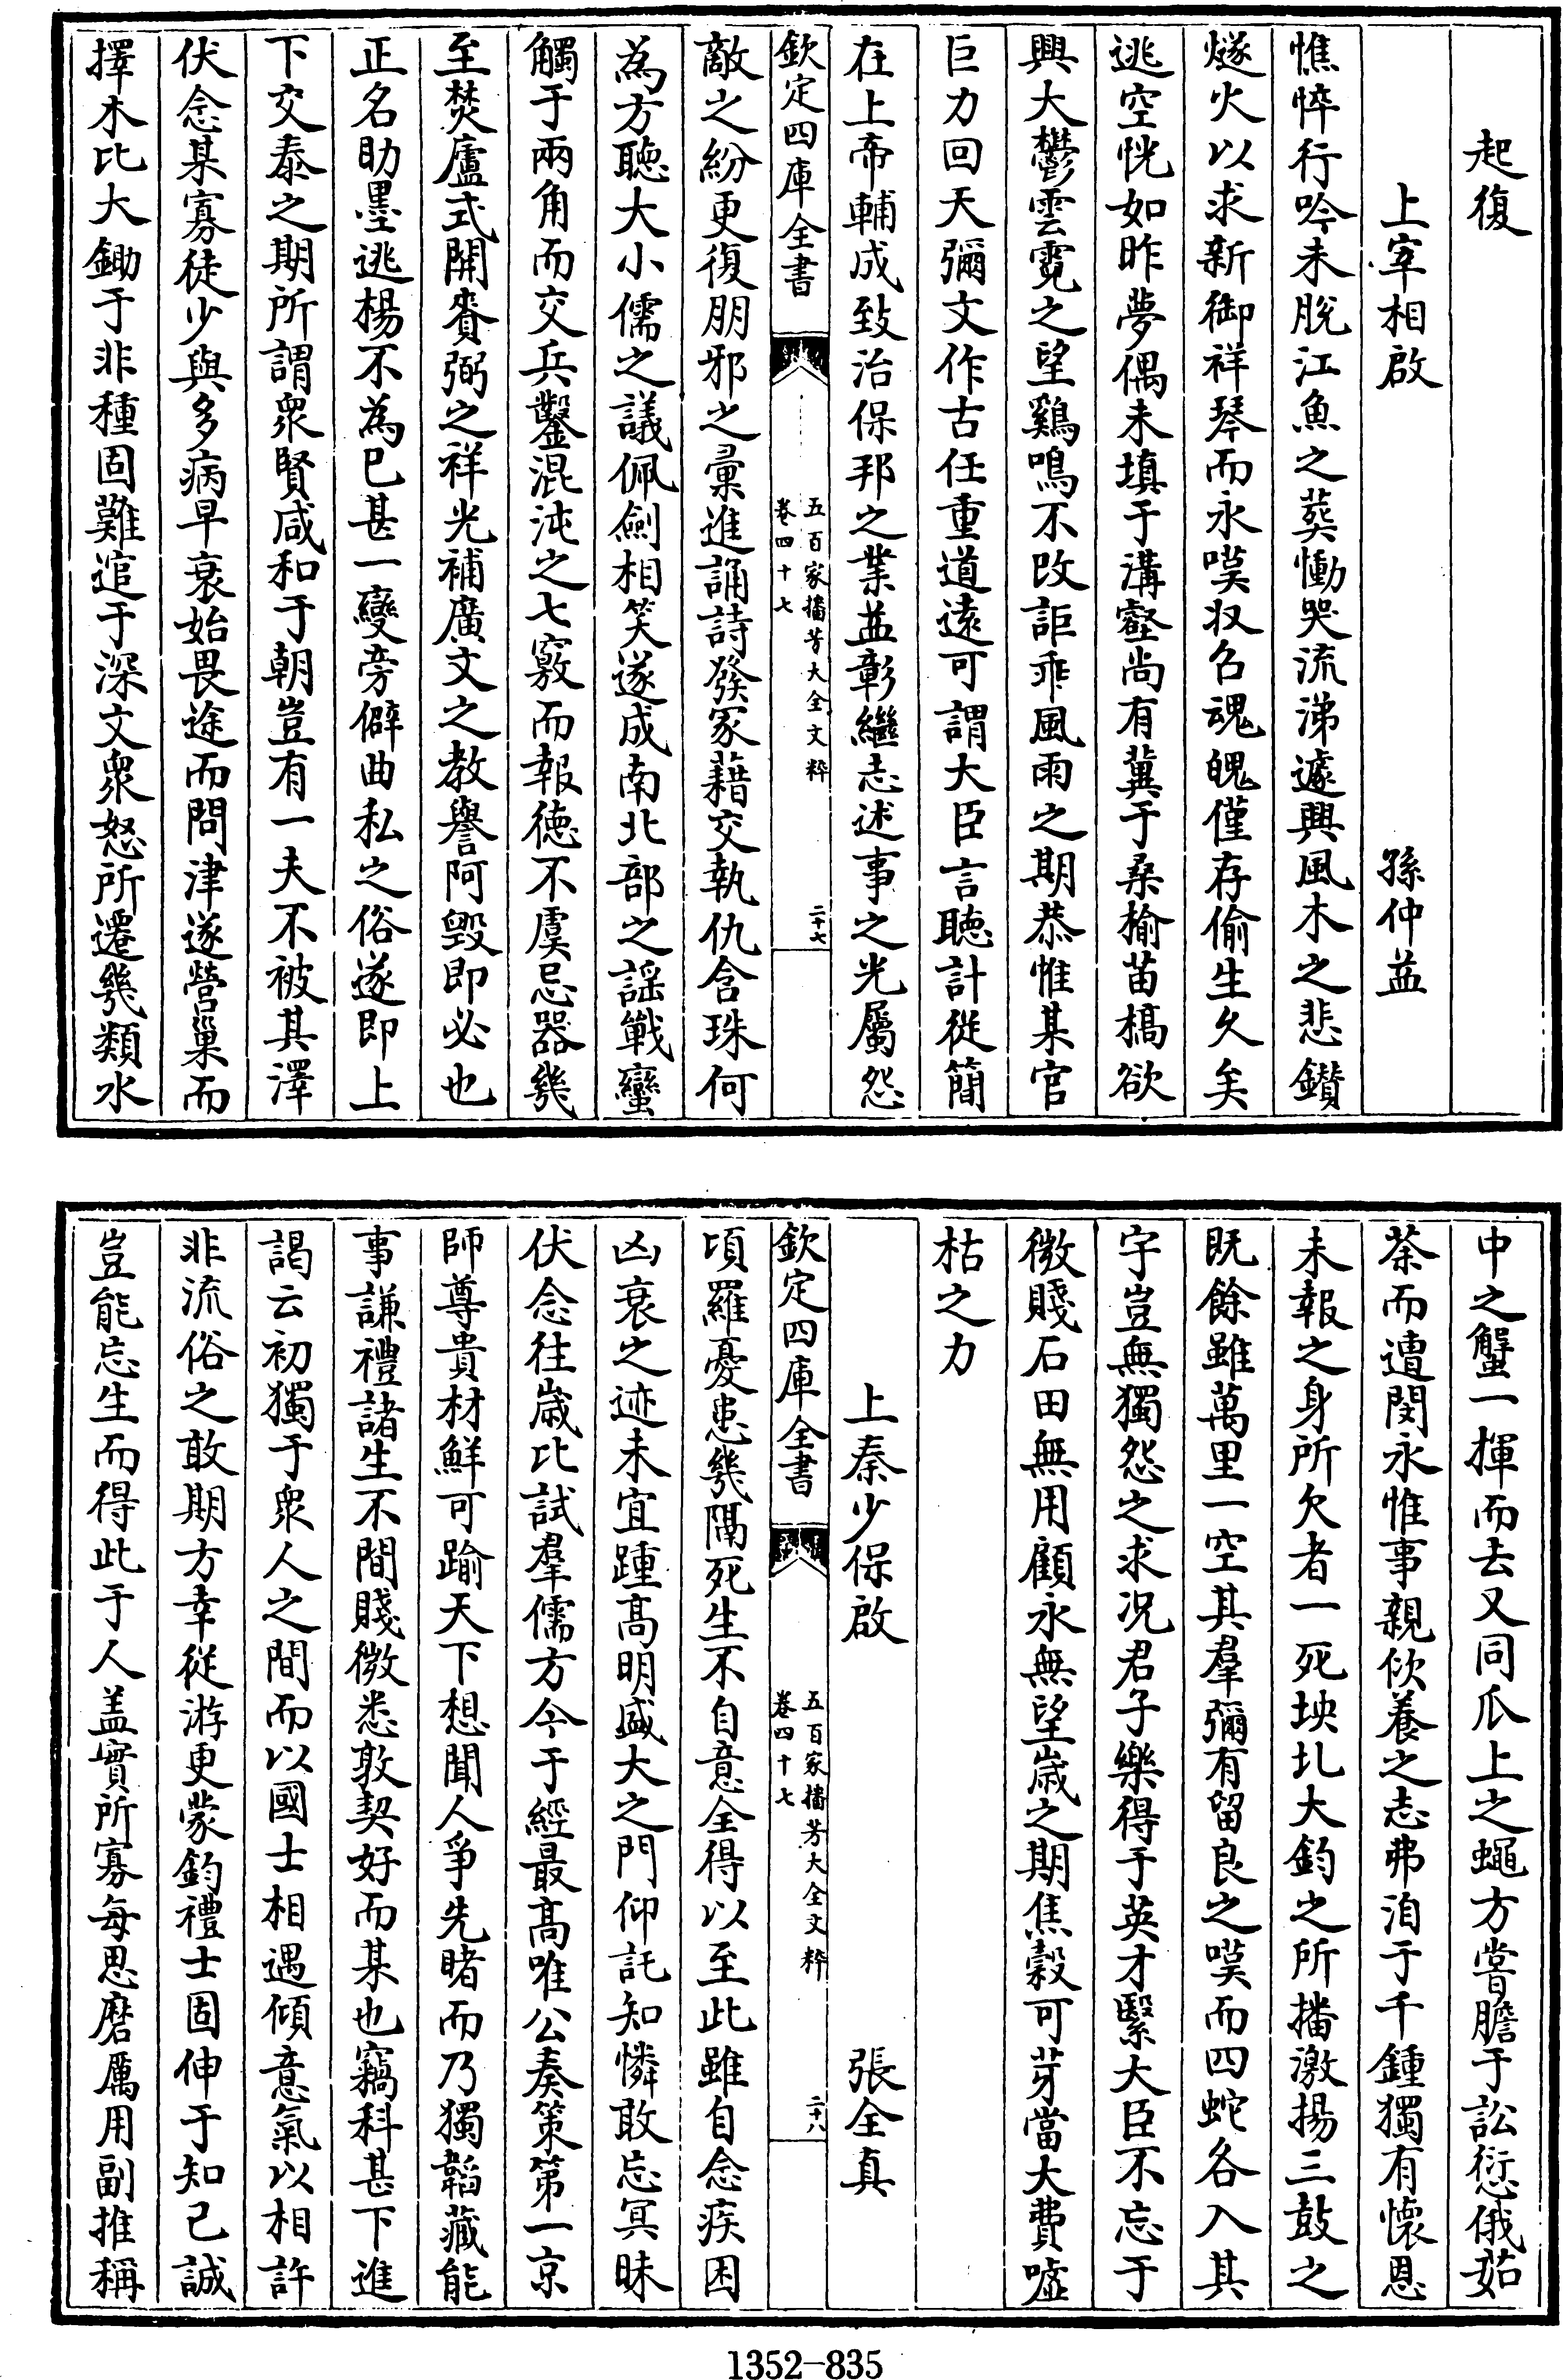 起復
上宰相啟　孫仲益
憔悴行吟未脫江魚之葬慟哭流涕遽興風木之悲鑚
燧火以求新御祥琴而永嘆収召魂魄僅存偷生久矣
逃空恍如昨夢偶未填于溝壑尚有冀于桑榆苗槁欲
興大鬱雲霓之望鷄鳴不改詎乖風雨之期恭惟某官
巨力回天彌文作古任重道逺可謂大臣言聽計從簡
在上帝輔成致治保邦之業益彰繼志述事之光屬怨
欽定四庫全書
五百家播芳大全文粹
卷四十七
二十七
敵之紛更復朋邪之彚進誦詩發冢藉交執仇含珠何
為方聽大小儒之議佩劍相笑遂成南北部之謡戰蠻
觸于兩角而交兵鑿混沌之七竅而報徳不虞忌器幾
至焚廬式開賚弼之祥光補廣文之教譽阿毁即必也
正名助墨逃楊不為已甚一變旁僻曲私之俗遂即上
下交泰之期所謂衆賢咸和于朝豈有一夫不被其澤
伏念某寡徒少與多病早衰始畏途而問津遂營巢而
擇木比大鋤于非種固難逭于深文衆怒所遷幾類水
中之蟹一揮而去又同爪上之蠅方嘗膽于訟愆俄茹
荼而遭閔永惟事親欣養之志弗洎于千鍾獨有懷恩
未報之身所欠者一死坱圠大鈞之所播激揚三鼓之
既餘雖萬里一空其羣彌有留良之嘆而四蛇各入其
宇豈無獨怨之求况君子樂得于英才緊大臣不忘于
微賤石田無用顧永無望歳之期焦穀可芽當大費嘘
枯之力
上秦少保啟　張全真
欽定四庫全書
五百家播芳大全文粹
卷四十七
二十八
頃羅憂患幾隔死生不自意全得以至此雖自念疾困
凶衰之迹未宜踵高明盛大之門仰託知憐敢忘冥昧
伏念往歳比試羣儒方今于經最高唯公奏策第一京
師尊貴材鮮可踰天下想聞人爭先睹而乃獨韜藏能
事謙禮諸生不間賤微悉敦契好而某也竊科甚下進
謁云初獨于衆人之間而以國士相遇傾意氣以相許
非流俗之敢期方幸從游更蒙鈞禮士固伸于知己誠
豈能忘生而得此于人盖實所寡每思磨厲用副推稱
1352-835